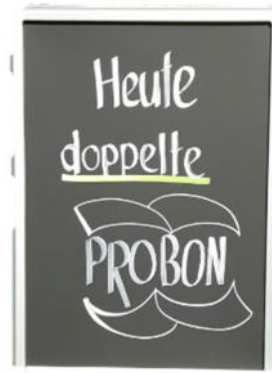 Heute
doppelte
PROBON